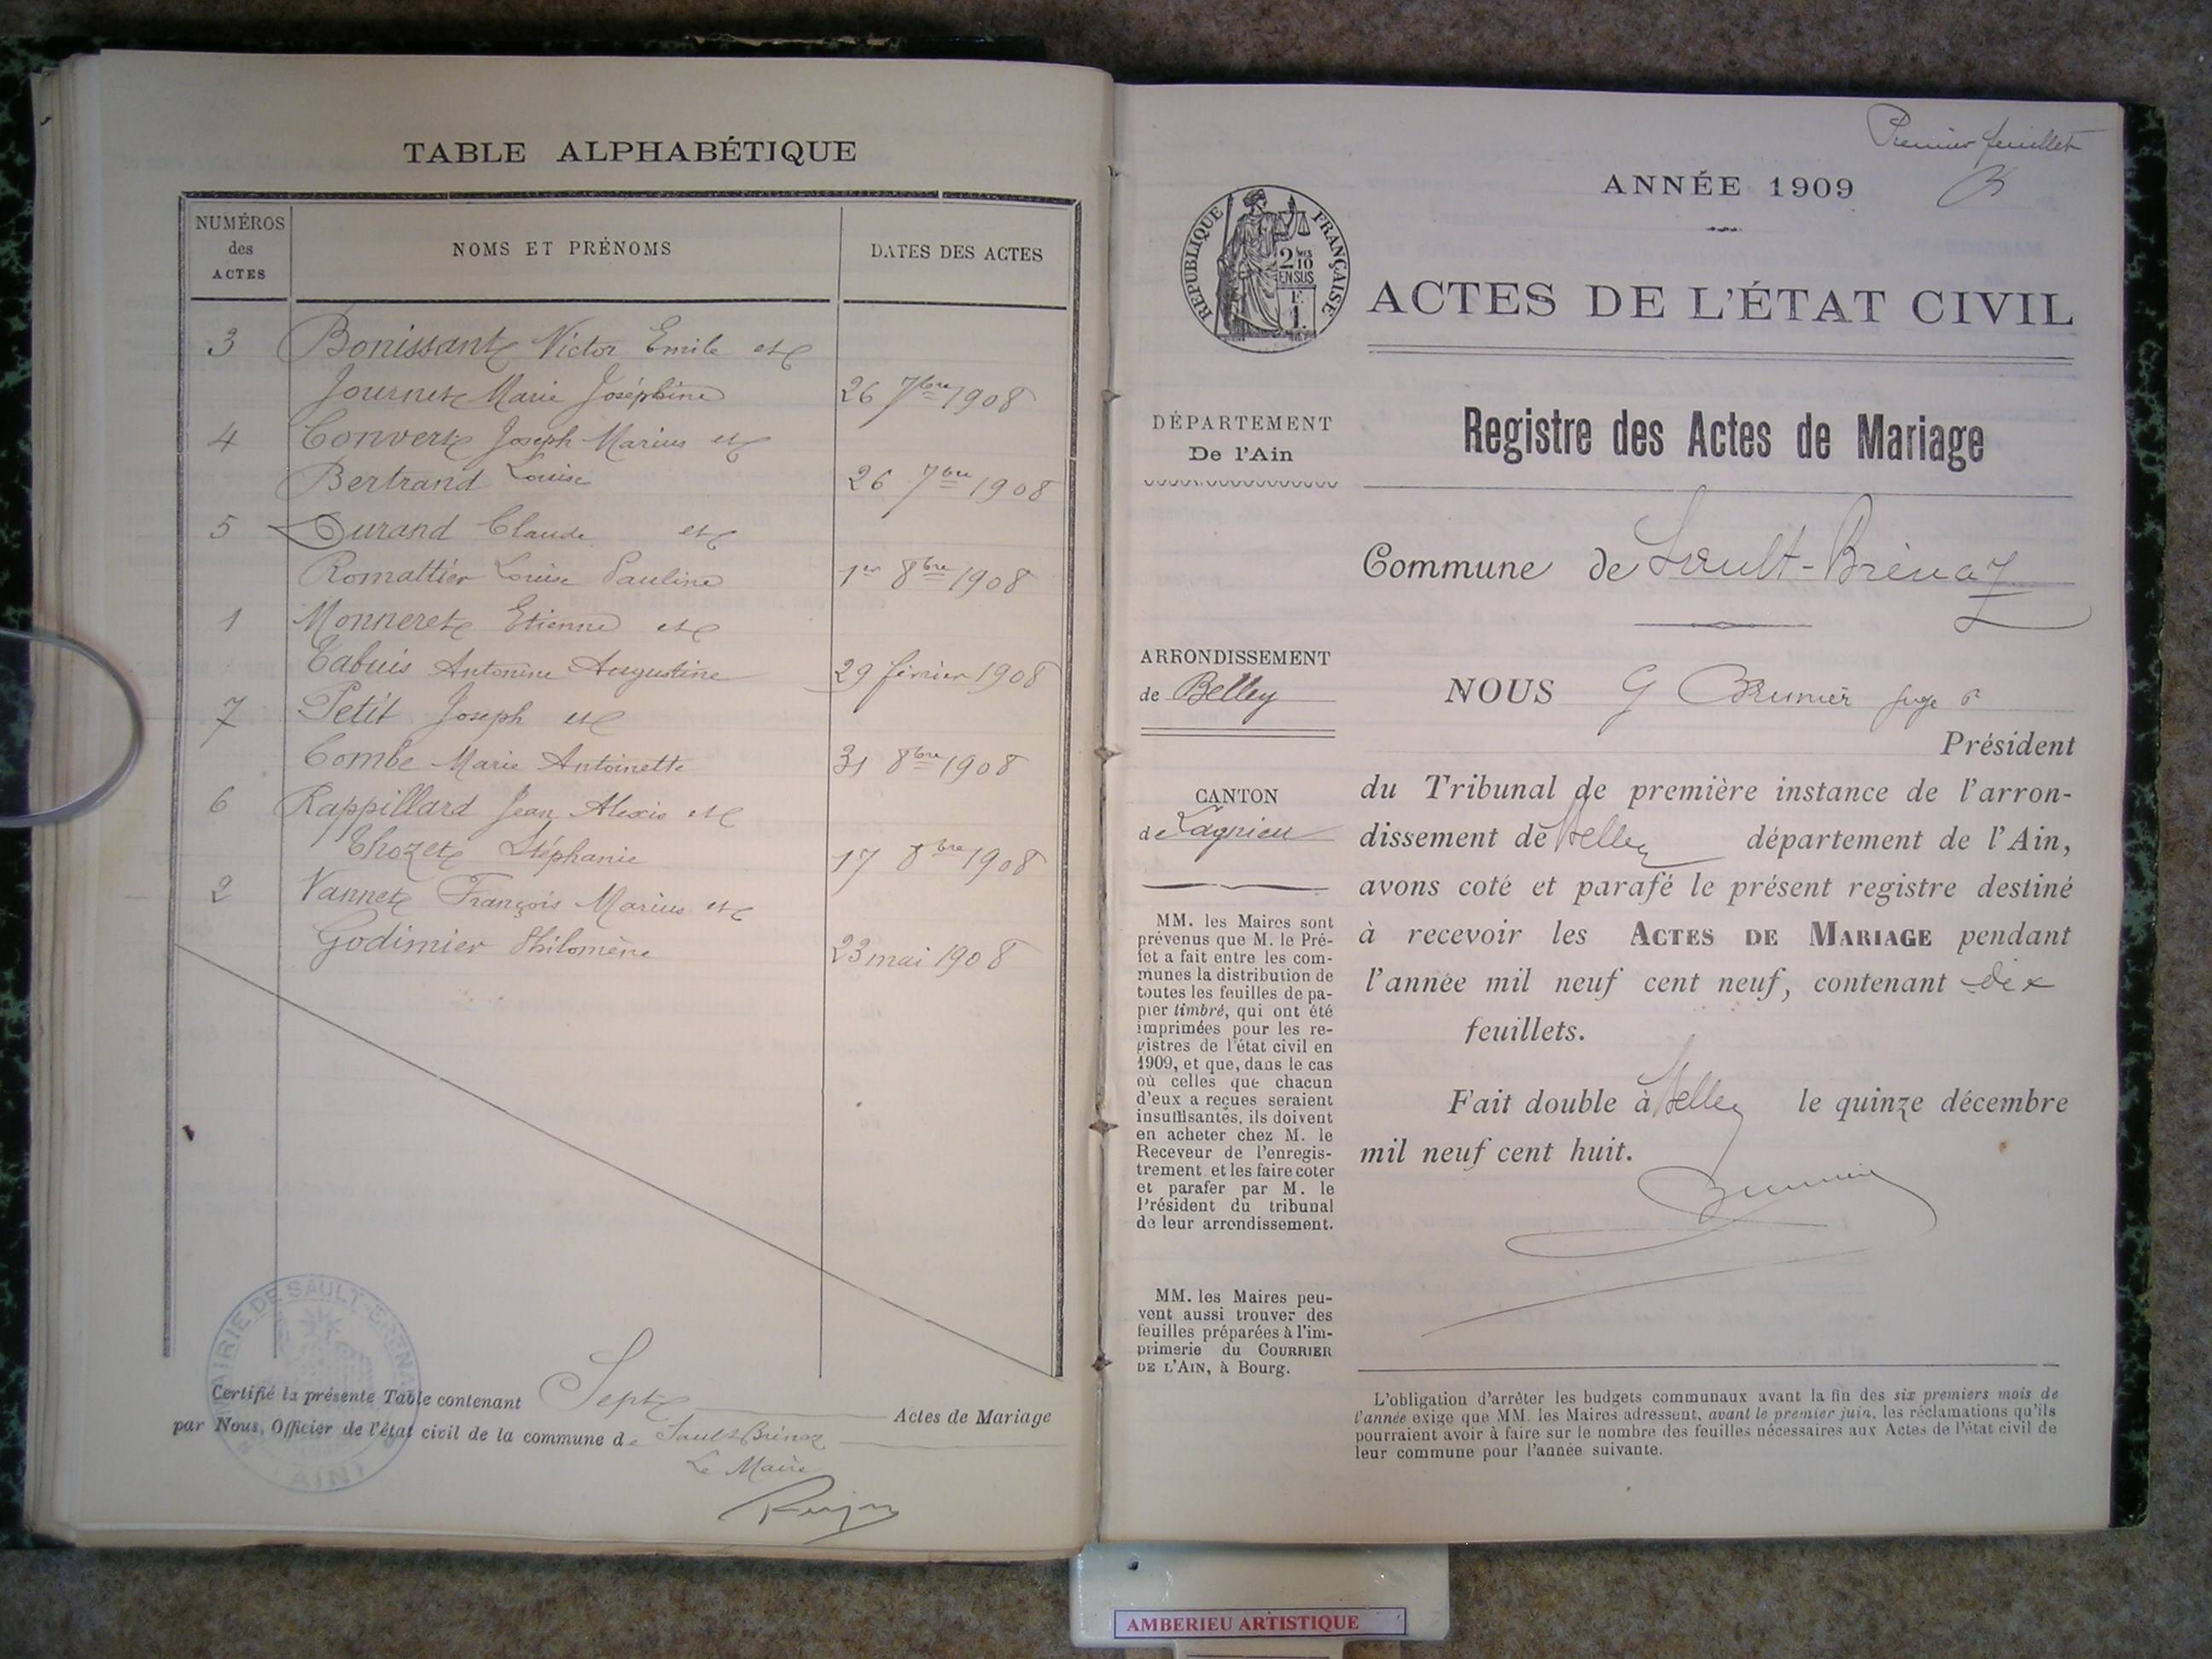 TABLE ALPHABÉTIQUE
NUMÉROS
des
ACTES
NOMS ET PRÉNOMS
DATES DES ACTES
3 Bonissant Victor Emile et
Journet Marie Joséphine 26 7bre 1908
4 Convert Joseph Marius et
Bertrand Louise 26 7bre 1908
5 Durand Claude et
Romattier Louise Pauline 1er 8bre 1908
1 Monneret Etienne et
Cabuis Antonine Augustine 29 février 1908
7 Petit Joseph et
Combe Marie Antoinette 31 8bre 1908
6 Rappillard Jean Alexis et
Thozet Stéphanie 17 8bre 1908
2 Vannet François Marius et
Godimier Philomène 23 mai 1908
MAIRIE DE SAULT-BRÉNAZ
(AIN)
Certifié la présente Table contenant Sept Actes de Mariage
par Nous, Officier de l'état civil de la commune de Sault-Brénaz
Le Maire
Premier feuillet
ANNÉE 1909
RÉPUBLIQUE FRANÇAISE
2 10
EN SUS
F.
1.
ACTES DE L'ÉTAT CIVIL
DÉPARTEMENT
De l'Ain
Registre des Actes de Mariage
Commune de Sault-Brénaz
ARRONDISSEMENT
de Belley
NOUS G Brunier juge
Président
CANTON
de Lagnieu
du Tribunal de première instance de l'arron-
dissement de Belley département de l'Ain,
avons coté et parafé le présent registre destiné
à recevoir les ACTES DE MARIAGE pendant
l'année mil neuf cent neuf, contenant dix
feuillets.
Fait double à Belley le quinze décembre
mil neuf cent huit.
Brunier
MM. les Maires sont
prévenus que M. le Pré-
fet a fait entre les com-
munes la distribution de
toutes les feuilles de pa-
pier timbré, qui ont été
imprimées pour les re-
gistres de l'état civil en
1909, et que, dans le cas
où celles que chacun
d'eux a reçues seraient
insuffisantes, ils doivent
en acheter chez M. le
Receveur de l'enregis-
trement et les faire coter
et parafer par M. le
Président du tribunal
de leur arrondissement.
MM. les Maires peu-
vent aussi trouver des
feuilles préparées à l'im-
primerie du COURRIER
DE L'AIN, à Bourg.
L'obligation d'arrêter les budgets communaux avant la fin des six premiers mois de
l'année exige que MM. les Maires adressent, avant le premier juin, les réclamations qu'ils
pourraient avoir à faire sur le nombre des feuilles nécessaires aux Actes de l'état civil de
leur commune pour l'année suivante.
AMBERIEU ARTISTIQUE